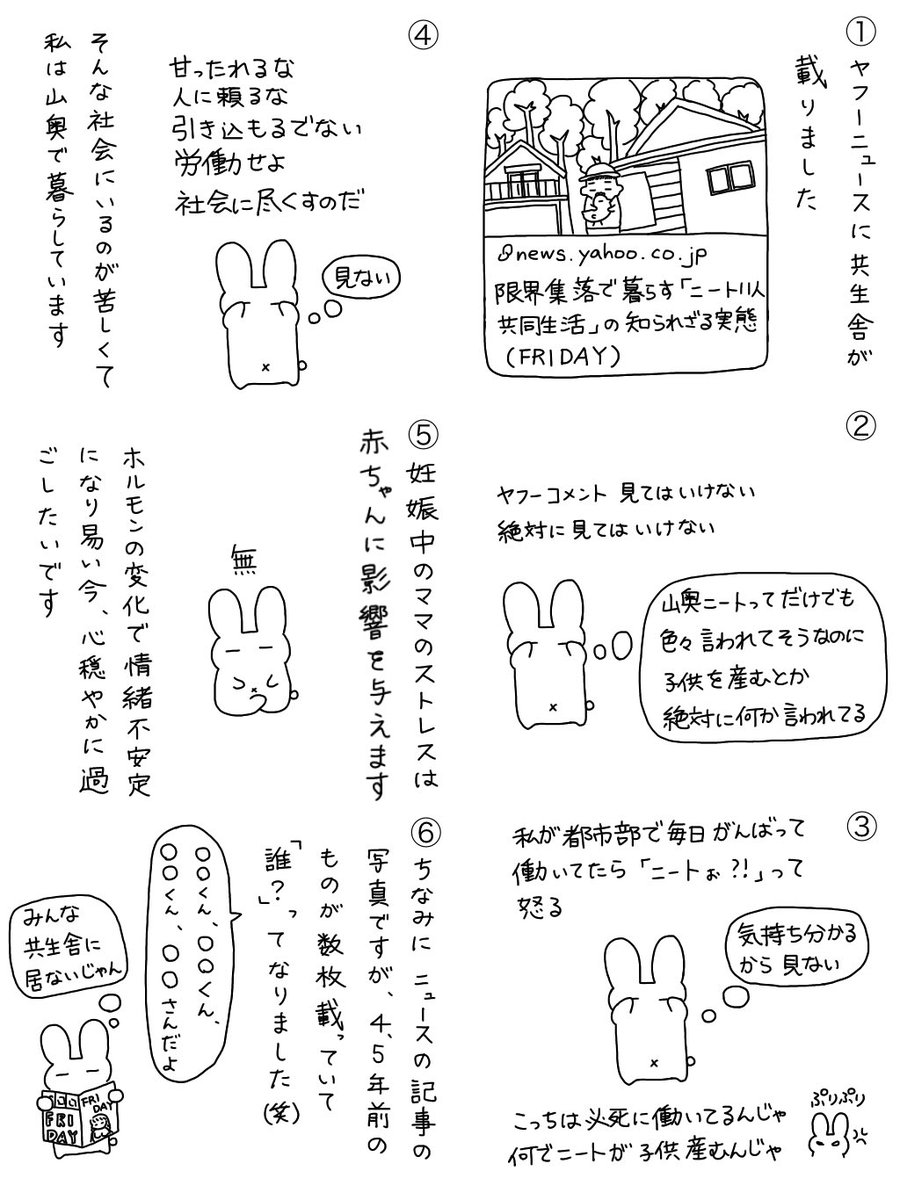 ①
ヤフーニュースに共生舎が
載りました
news.yahoo.co.jp
限界集落で暮らす「ニート11人
共同生活」の知られざる実態
(FRIDAY)
②
ヤフーコメント 見てはいけない
絶対に見てはいけない
山奥ニートってだけでも
色々言われてそうなのに
子供を産むとか
絶対に何か言われてる
③
私が都市部で毎日がんばって
働いてたら「ニートぉ?!」って
怒る
気持ち分かる
から見ない
こっちは必死に働いてるんじゃ
何でニートが子供産むんじゃ
ぷりぷり
④
甘ったれるな
人に頼るな
引き込もるでない
労働せよ
社会に尽くすのだ
見ない
そんな社会にいるのが苦しくて
私は山奥で暮らしています
⑤
妊娠中のママのストレスは
赤ちゃんに影響を与えます
無
ホルモンの変化で情緒不安定
になり易い今、心穏やかに過
ごしたいです
⑥
ちなみにニュースの記事の
写真ですが、4、5年前の
ものが数枚載っていて
「誰?」ってなりました(笑)
〇〇くん、〇〇くん、
〇〇くん、〇〇さんだよ
みんな
共生舎に
居ないじゃん
FRI
DAY
FRI
DAY